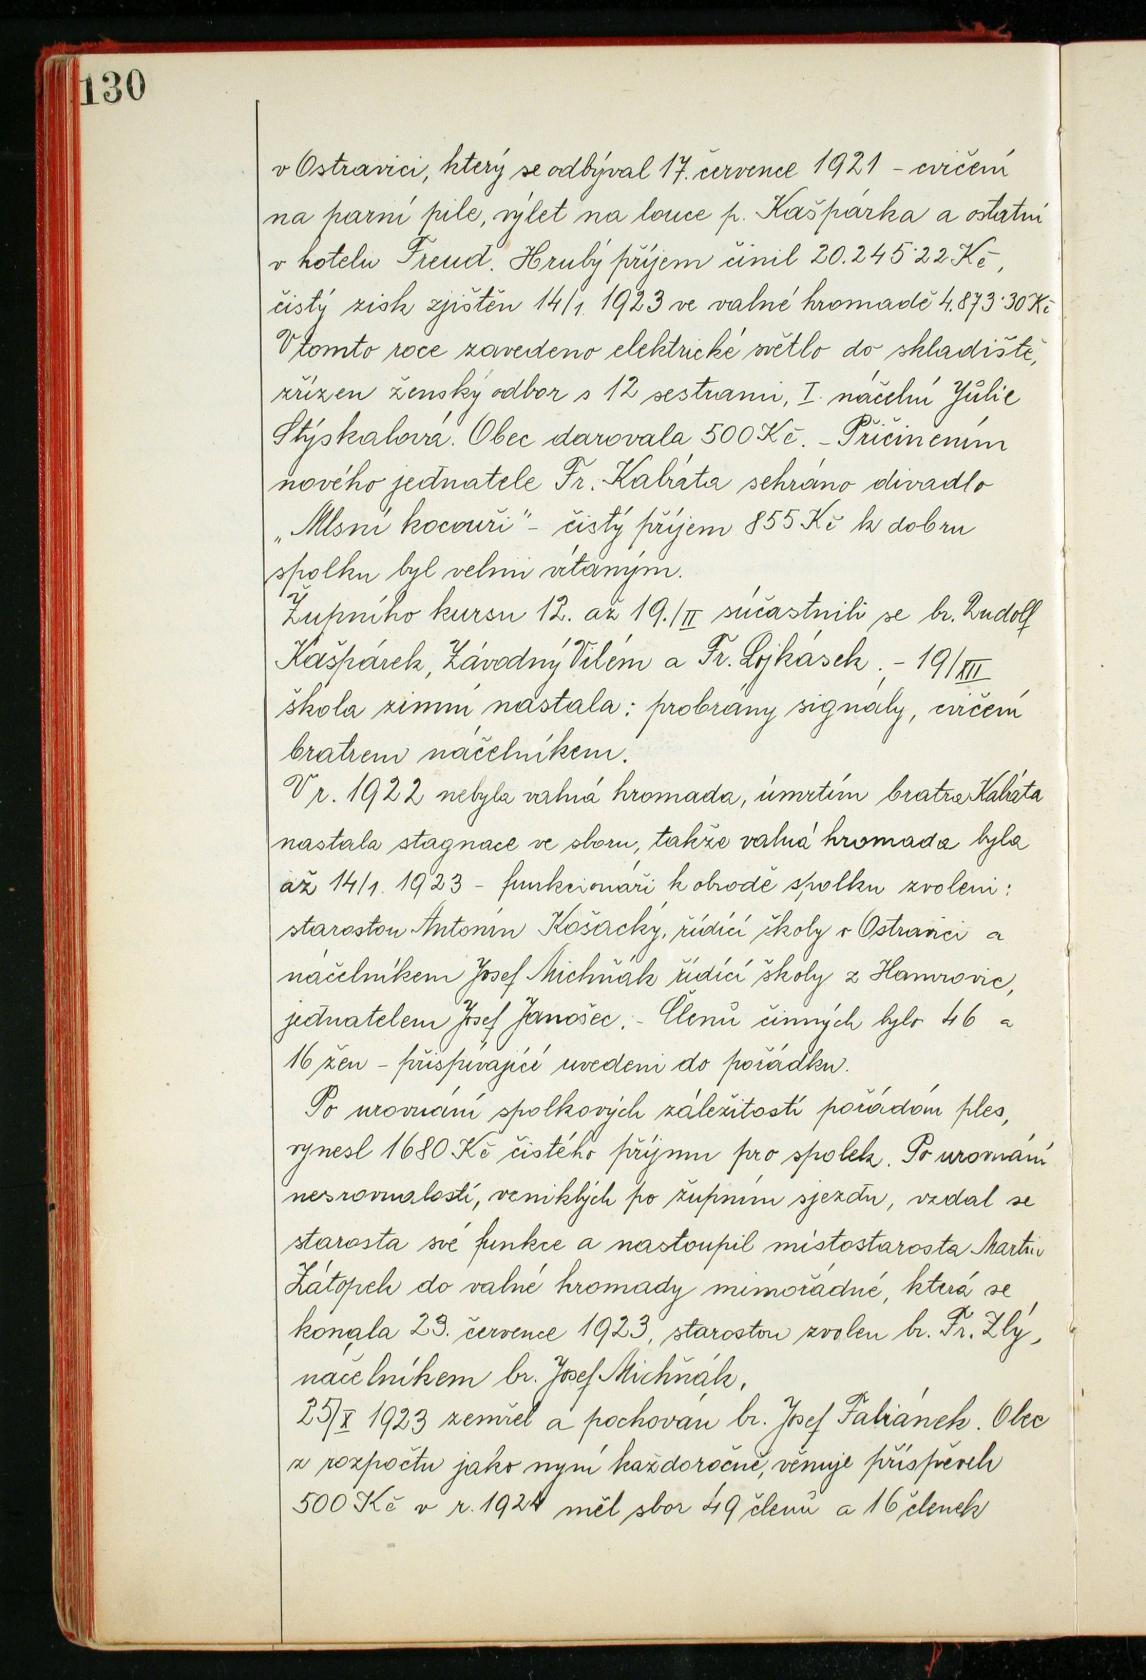 130
v Ostravici, který se odbýval 17. července 1921 – cvičení
na parní pile, výlet na louce p. Kašpárka a ostatní
v hotelu Freud. Hrubý příjem činil 20.245·22 Kč,
čistý zisk zjištěn 14/1. 1923 ve valné hromadě 4.873·30 Kč
V tomto roce zavedeno elektrické světlo do skladiště,
zřízen ženský odbor s 12 sestrami, I. náčelní Júlie
Stýskalová. Obec darovala 500 Kč. – Přičiněním
nového jednatele Fr. Kabráta sehráno divadlo
„Mlsní kocouři" – čistý příjem 855 Kč k dobru
spolku byl velmi vítaným.
Župního kursu 12. až 19./II súčastnili se br. Rudolf
Kašpárek, Závodný Vilém a Fr. Lojkásek. – 19/XII
škola zimní nastala: probrány signály, cvičení
bratrem náčelníkem.
V r. 1922 nebyla valná hromada, úmrtím bratra Kabráta
nastala stagnace ve sboru, takže valná hromada byla
až 14/1. 1923 – funkcionáři k obrodě spolku zvoleni:
starostou Antonín Košacký, řídící školy v Ostravici a
náčelníkem Josef Michňák řídící školy z Hamrovic,
jednatelem Josef Janošec. – Členů činných bylo 46 a
16 žen – přispívající uvedeni do pořádku.
Po urovnání spolkových záležitostí pořádán ples,
vynesl 1680 Kč čistého příjmu pro spolek. Po urovnání
nesrovnalostí, vzniklých po župním sjezdu, vzdal se
starosta své funkce a nastoupil místostarosta Martin
Zátopek do valné hromady mimořádné, která se
konala 23. července 1923, starostou zvolen br. Fr. Zlý,
náčelníkem br. Josef Michňák.
25/X 1923 zemřel a pochován br. Josef Fabiánek. Obec
z rozpočtu jako nyní každoročně, věnuje příspěvek
500 Kč v r. 1924 měl sbor 49 členů a 16 členek